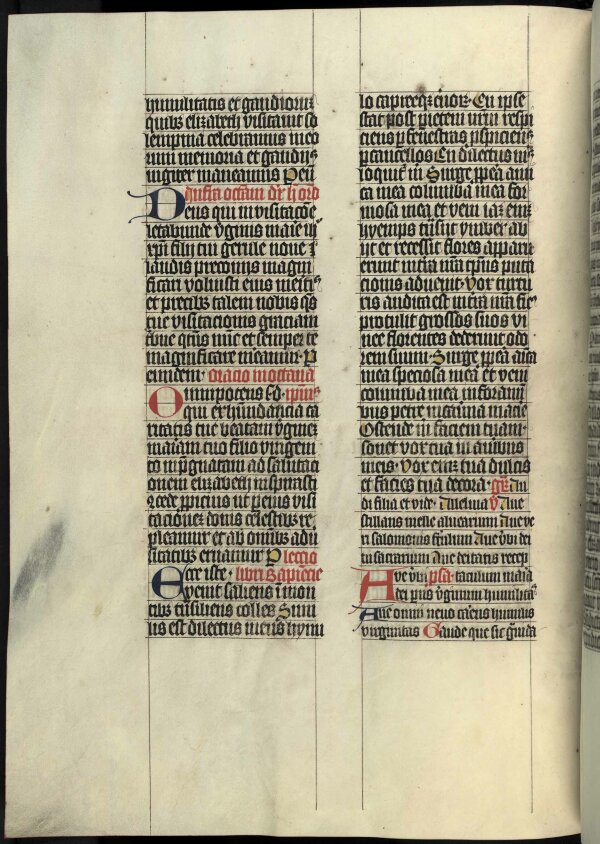 humilitatis et gaudiorum
quibus elizabeth visitavit so
lempnia celebramus meo
rum memoria et gaudijs
iugiter maneamus Per
Dominica infra octavam
Deus qui in visitacōe
letabunde v̄ginis marie m̄
filij tui gerule nove
laudis preconijs magni
ficari voluisti eius meritis
et precibus talem nobis qs
tue visitacionis graciam
tbue qtus nūc et semper te
magnificare mereamur P
eundem Oracio in octava
Omnipotens s d ipius
qui ex habundancia ca
ritatis tue beatam v̄ginem
mariam tuo filio virgem
to impgnatam ad salutaci
onem elizabeth inspirasti
ꝯcede ppicius ut per eius visi
tacionem donis celestibus re
pleamur et ab omibus adū
sitatibus eruamur P leccio
Ecce iste libri Sapiencie
venit saliens in mon
tibus trāsiliens colles Simi
lis est dilectus meus hynnu
lo capree qȝ cervor En ipse
stat post pietem nrm respi
ciens p fenestras pspiciens
p cancellos En dilectus ms
loquit m Surge ppea ami
ca mea columba mea for
mosa mea et veni iaz enim
hyemps tūsijt ymber ab
ijt et recessit flores apparu
erunt in tra nra tpus puta
cionis advenit Vox turtu
ris audita est in tra nra fic
protulit grossos suos vi
nee florentes dederunt odo
rem suum Surge ppea amica
mea speciosa mea et veni
columba mea in foramī
bus petre in caverna macie
Ostende m faciem tuam
sonet vox tua in auribus
meis Vox enim tua dulcis
et facies tua decora gr Au
di filia et vide Alleluia v̄ Ave
stillans melle alvearium Ave ve
ri salomonis Ave v̄bi dei
in sacrarium Ave deitatis
Ave v̄bi psa taculum maria
dei prius v̄ginum humilitas
Ave omni nevo carens humilis
virginitas Gaude que sic